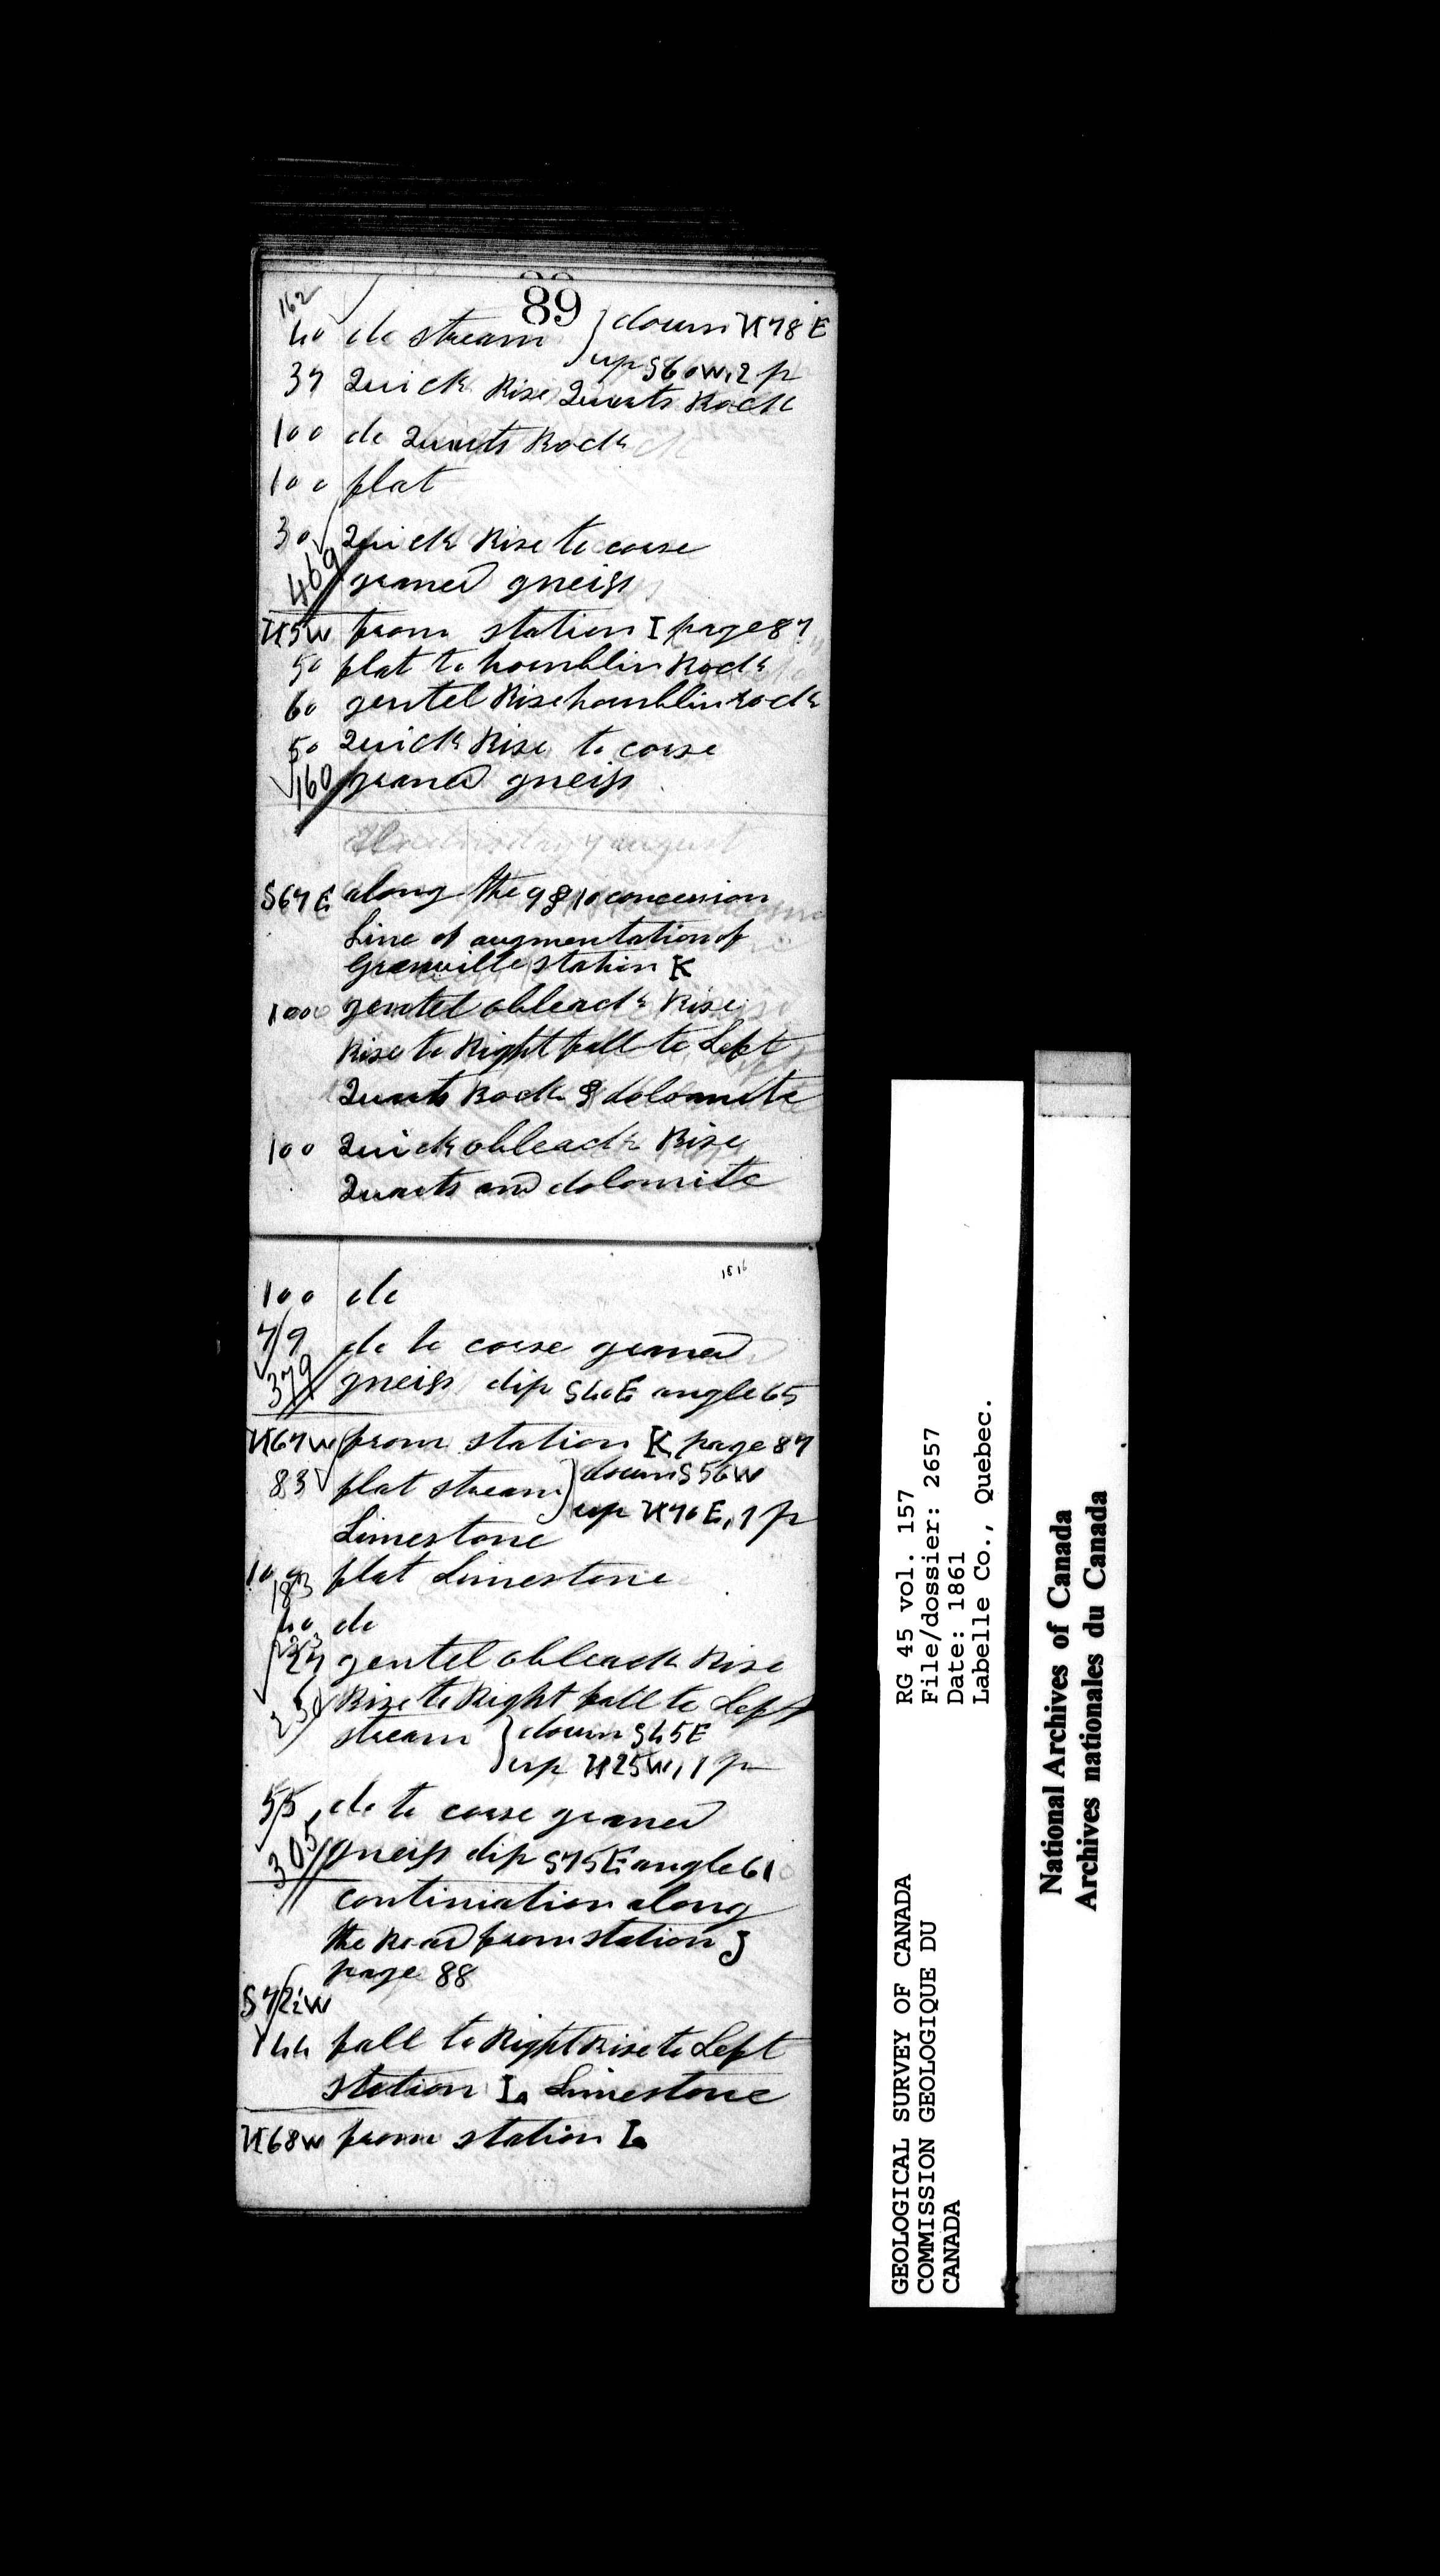 89
162
40 do stream } down N78E
up S60W, 2 p
37 Quick Rise Quarts Rock
100 do Quarts Rock
100 flat
30 Quick Rise to corse
469 graned gneiss
N5W from station I page 87
50 flat to hornblin Rock
60 gentel Rise hornblin rock
50 Quick Rise to corse
160 graned gneiss
august
S67E along the 9 & 10 concession
Line of augmentation of
Grenville station K
100 gentel obleack Rise
Rise to Right fall to Left
Quarts Rock & dolomite
100 Quick obleack Rise
Quarts and dolomite
1816
100 do
79 do to corse graned
379 gneiss dip S40E angle 65
N67W from station K page 87
83 flat stream } down S56W
up N76E, 1 p
Limestone
100 flat Limestone
183
40 do
223
27 gentel obleack Rise
250 Rise to Right fall to Left
stream } down S45E
up N25W, 1 p
55 do to corse graned
305 gneiss dip S75E angle 61
continiation along
the Road from station J
page 88
S72W
144 fall to Right Rise to Left
station L Limestone
N68W from station L
GEOLOGICAL SURVEY OF CANADA
COMMISSION GEOLOGIQUE DU
CANADA
RG 45 vol. 157
File/dossier: 2657
Date: 1861
Labelle Co., Quebec.
National Archives of Canada
Archives nationales du Canada